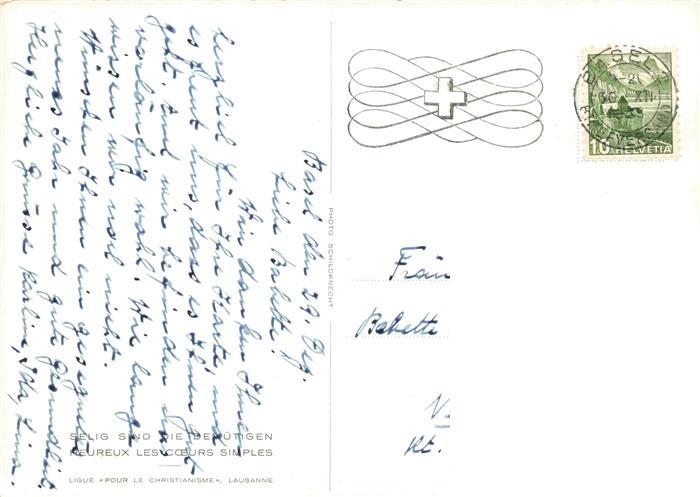 Basel den 29. Dez.
Liebe Babette!
Wir danken Ihnen
herzlich für Ihre Karte, und
es freut uns, dass es Ihnen gut
geht. Und wir befinden uns
vorläufig wohl. Wie lange
wissen wir noch nicht.
Wünschen Ihnen ein gesegnetes
neues Jahr und gute Gesundheit.
Herzliche Grüsse Karline, Ida, Lina.
SELIG SIND DIE DEMÜTIGEN
HEUREUX LES CŒURS SIMPLES
LIGUE «POUR LE CHRISTIANISME», LAUSANNE
PHOTO SCHILDKNECHT
BASEL
BRIEFVERSAND
10 HELVETIA
Fräu
Babette
V.
Kt.